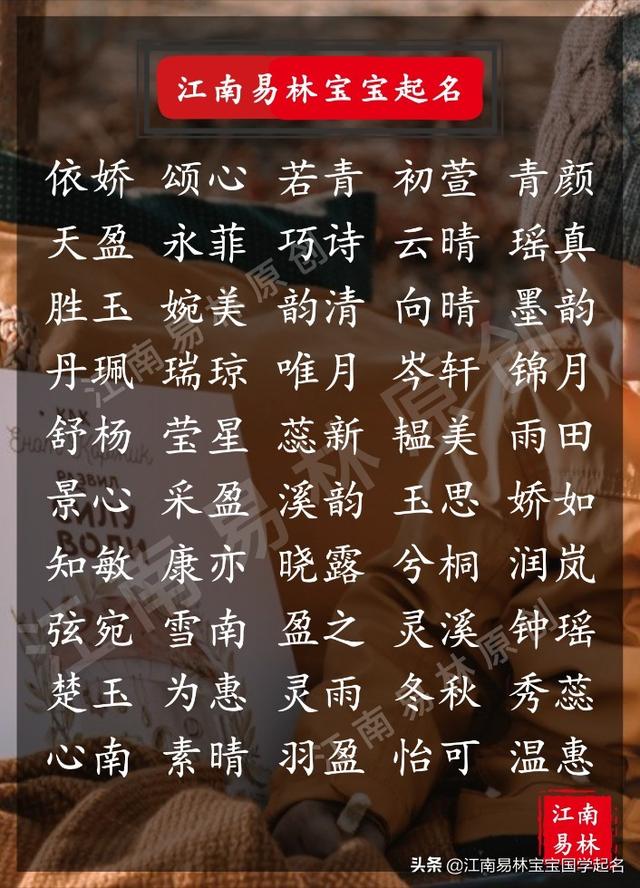 江南易林宝宝起名
依娇 颂心 若青 初萱 青颜
天盈 永菲 巧诗 云晴 瑶真
胜玉 婉美 韵清 向晴 墨韵
丹珮 瑞琼 唯月 岑轩 锦月
舒杨 莹星 蕊新 韫美 雨田
景心 采盈 溪韵 玉思 娇如
知敏 康亦 晓露 兮桐 润岚
弦宛 雪南 盈之 灵溪 钟瑶
楚玉 为惠 灵雨 冬秋 秀蕊
心南 素晴 羽盈 怡可 温惠
江南易林原创
江南易林原创
江南易林原创
как
развил
силу
воли
江南
易林
头条 @江南易林宝宝国学起名